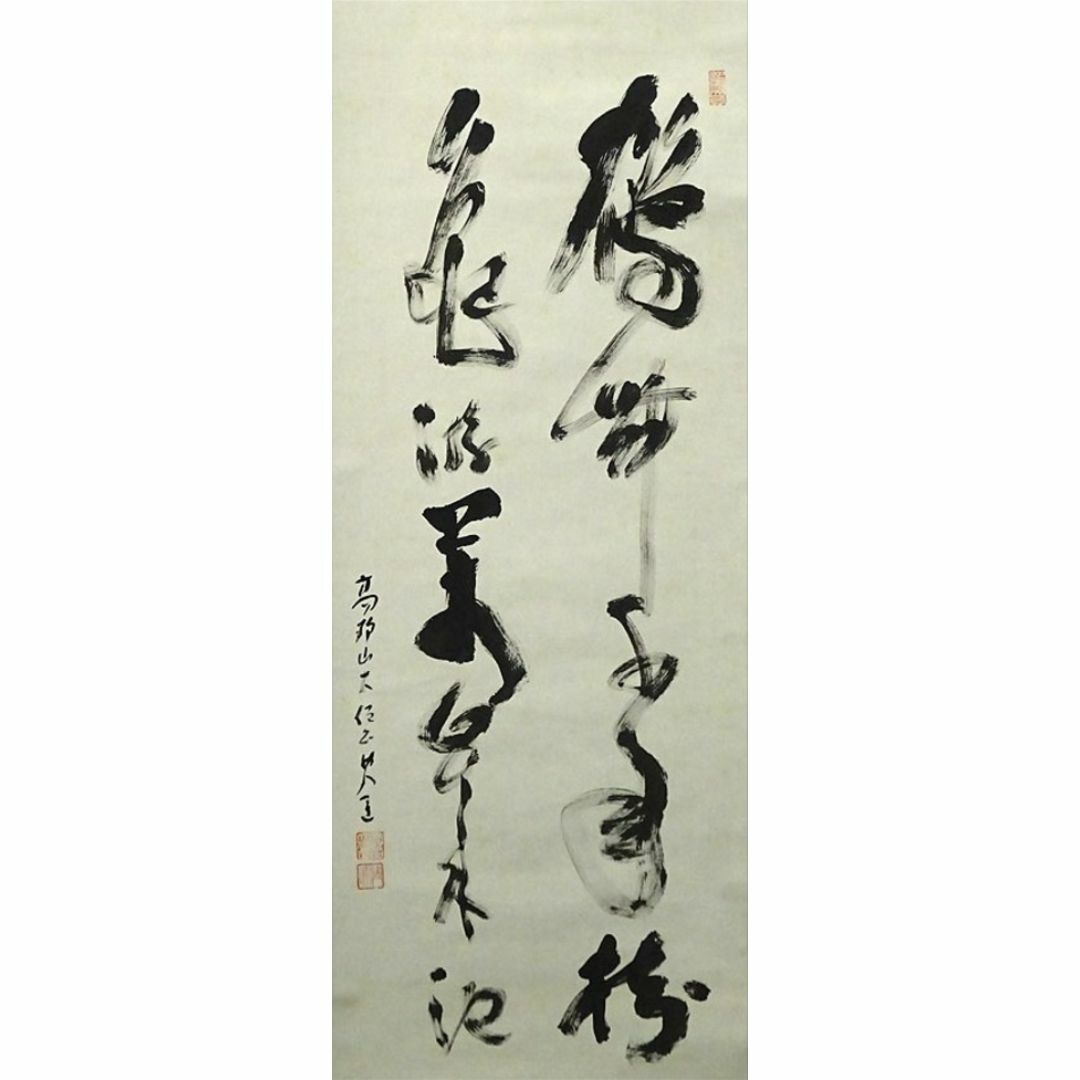 鶴舞千年樹
龜游萬池
高野山大僧正